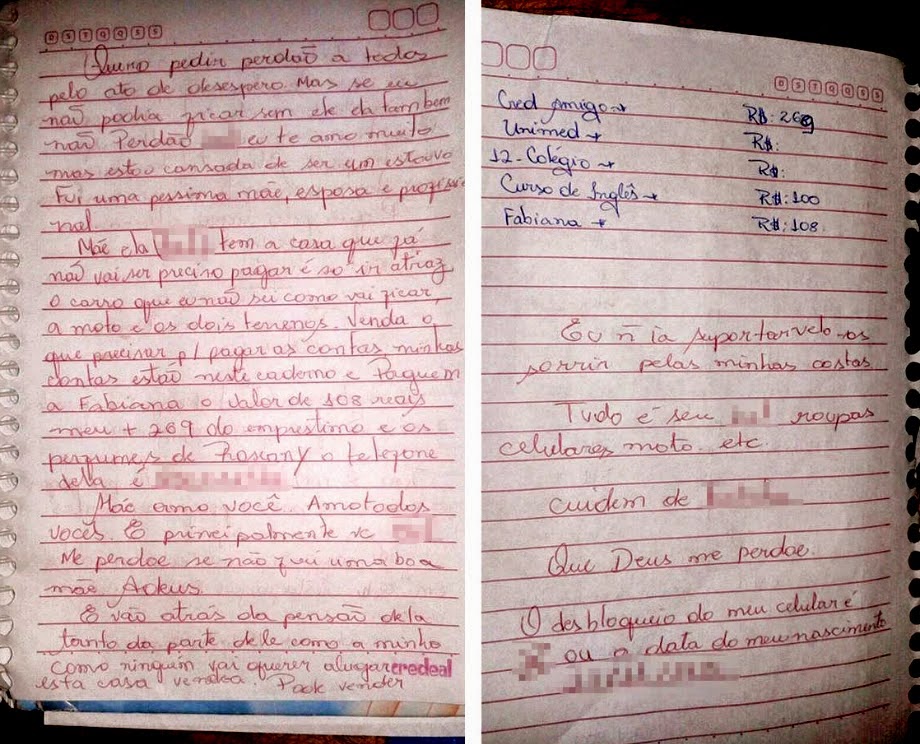 D S T Q Q S S
Quero pedir perdão a todos
pelo ato de desespero. Mas se eu
não podia ficar sem ele ela tambem
não. Perdão eu te amo muito
mas estou cansada de ser um estovo
Fui uma pessima mãe, esposa e profissio
nal.
Mãe ela tem a casa que já
não vai ser preciso pagar é so ir atraz
o carro que eu não sei como vai ficar,
a moto e os dois terrenos. Venda o
que precisar p/ pagar as contas minhas
contas estão neste caderno e Paguem
a Fabiana o valor de 108 reais
meu + 269 do emprestimo e os
perfumes de o telefone
della é
Mãe amo você. Amo todos
vocês. E principalmente vc
Me perdoe se não fui uma boa
mãe Adeus
E vão atrás da pensão dela
tanto da parte dele como a minha
como ningum vai querer alugar
credeal
esta casa vendea. vender
D S T Q Q S S
Cred Amigo → R$: 269
Unimed → R$:
12-Colégio → R$:
Curso de Inglês → R$: 100
Fabiana → R$: 108
Eu ñ ia suportar velo-os
sorrir pelas minhas costas
Tudo é seu roupas
celulares moto. etc.
cuidem de
Que Deus me perdoe.
O desbloqueio do meu celular é
ou a data do meu nascimento